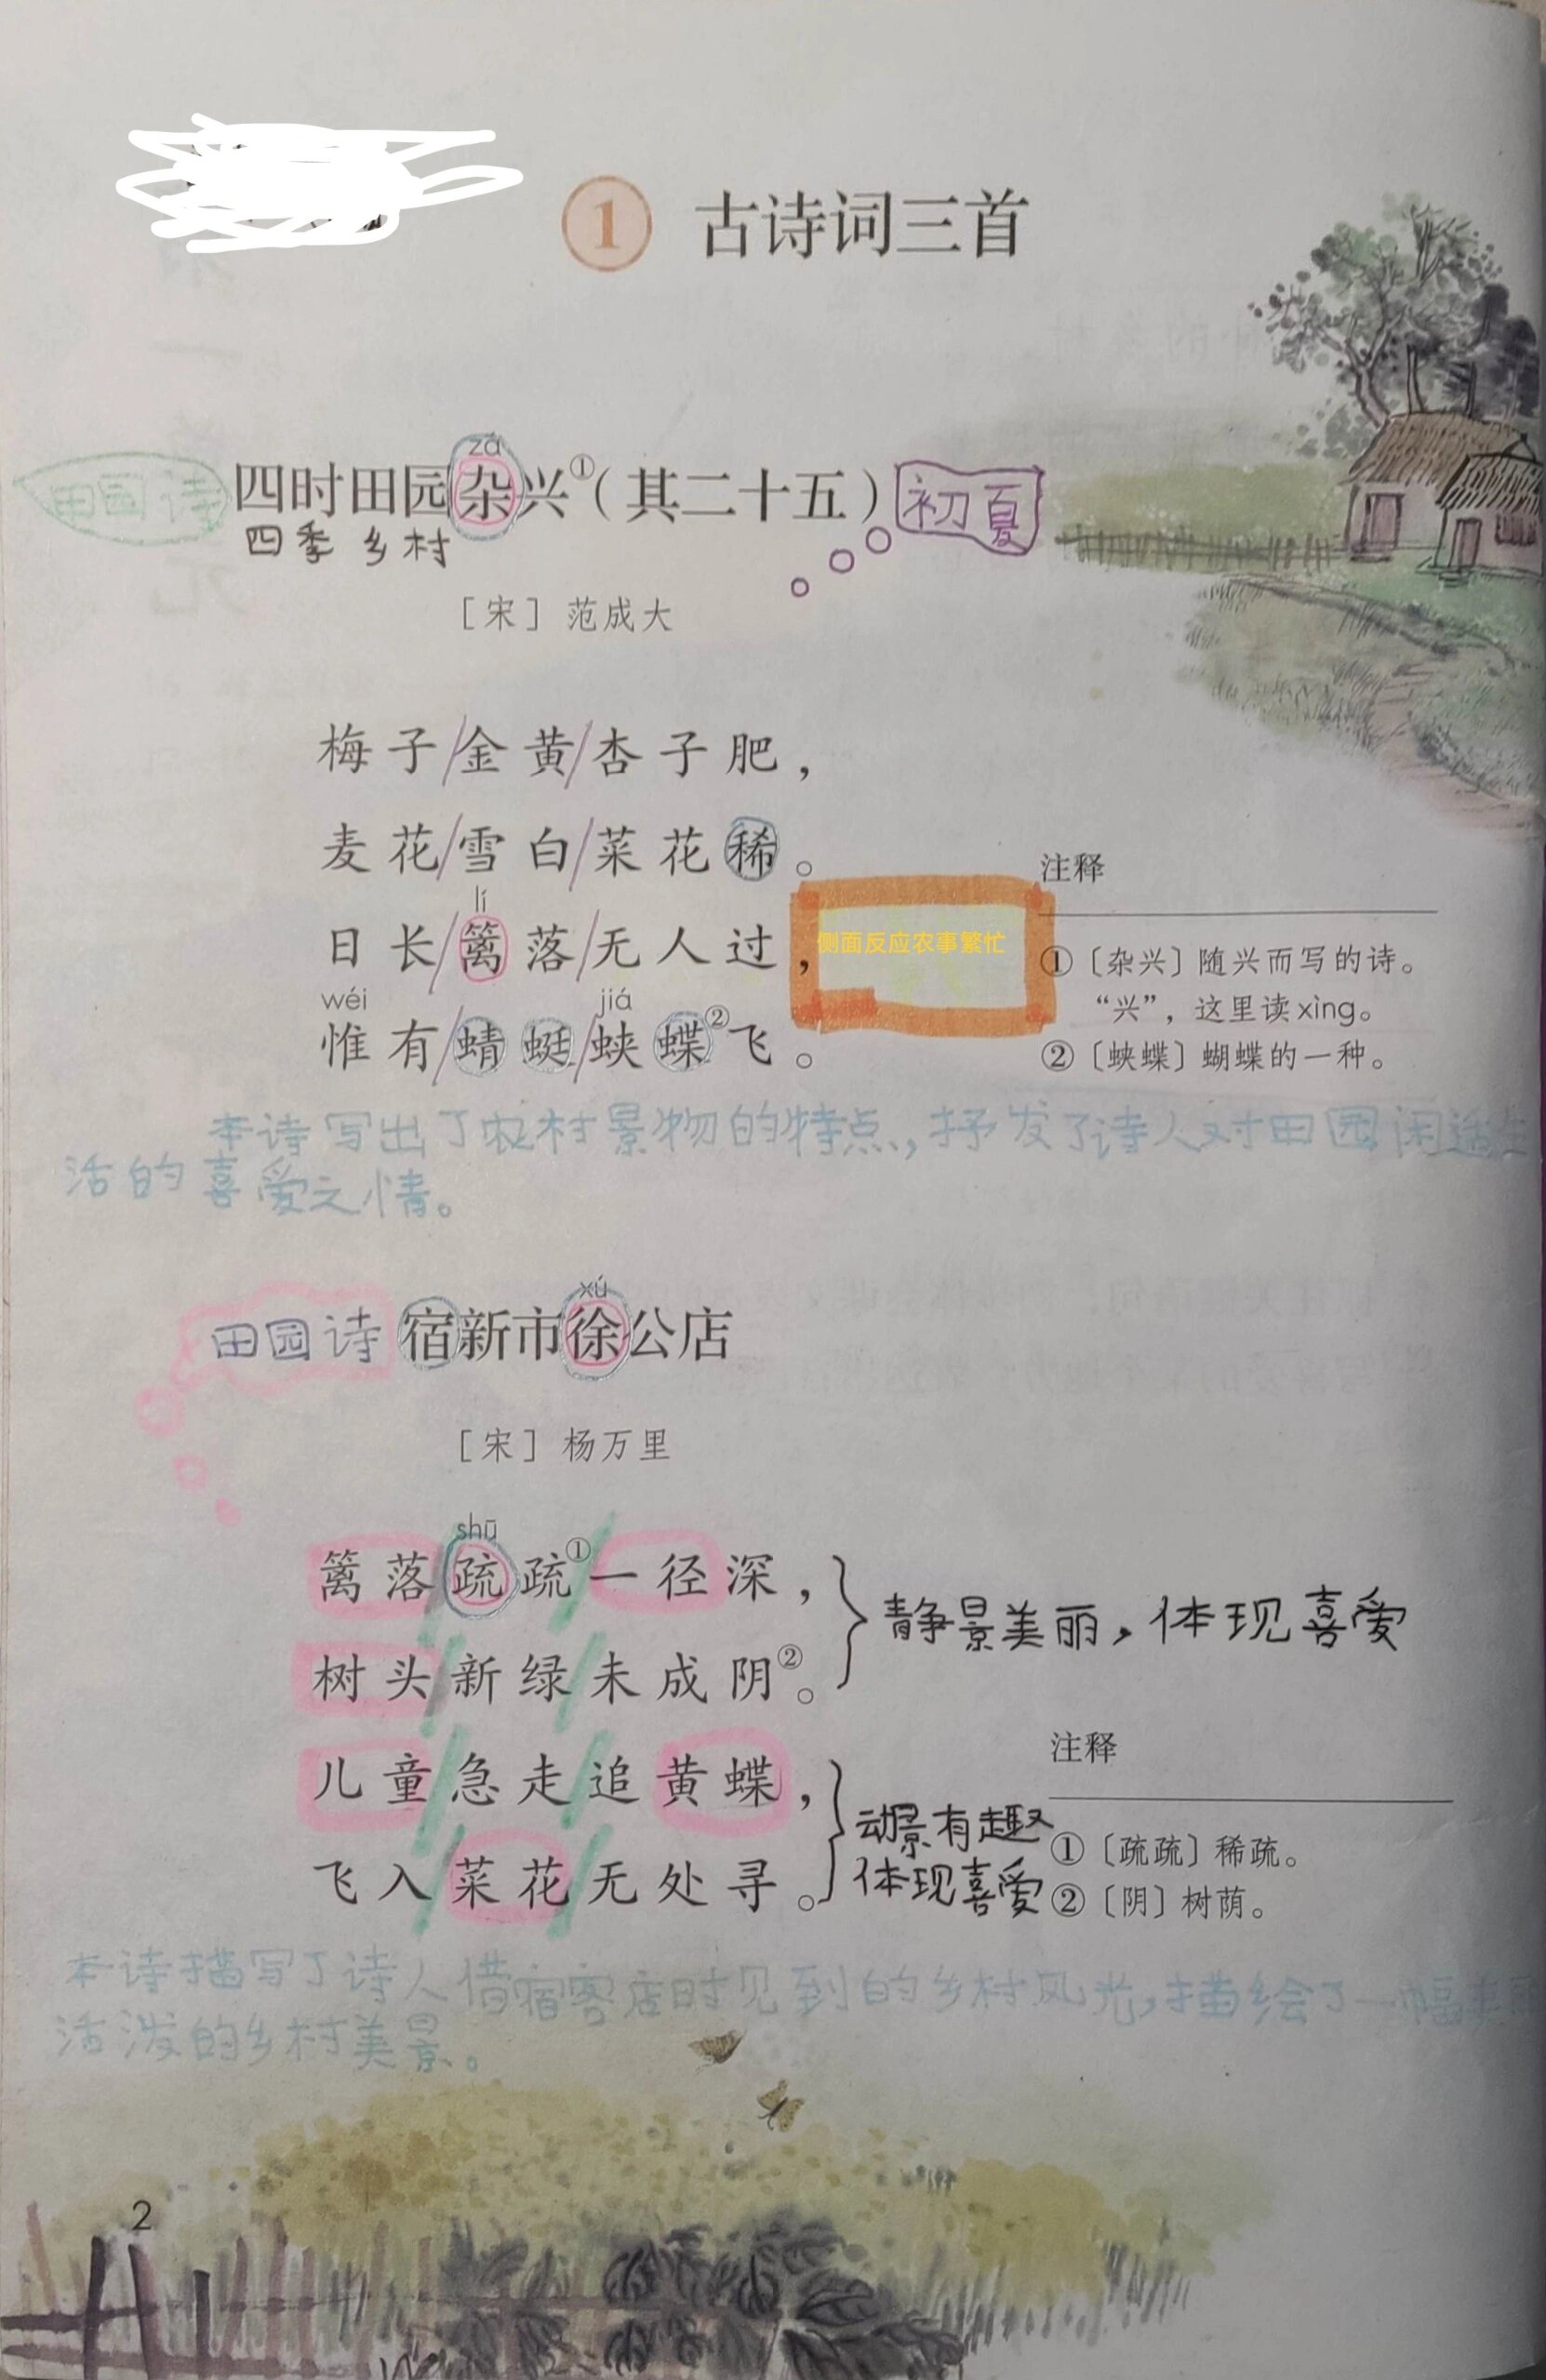 ① 古诗词三首
zá
田园诗 四时田园杂兴①（其二十五） 初夏
四季 乡村
［宋］范成大
梅子/金黄/杏子肥，
麦花/雪白/菜花稀。
lí
日长/篱落/无人过，
侧面反应农事繁忙
wéi jiá
惟有/蜻蜓/蛱蝶②飞。
注释
①〔杂兴〕随兴而写的诗。
“兴”，这里读xìng。
②〔蛱蝶〕蝴蝶的一种。
本诗写出了农村景物的特点，抒发了诗人对田园闲适生
活的喜爱之情。
xú
田园诗 宿新市徐公店
［宋］杨万里
shū
篱落/疏疏①/一径深，
树头/新绿/未成阴②。
静景美丽，体现喜爱
儿童/急走/追黄蝶，
飞入/菜花/无处寻。
动景有趣
体现喜爱
注释
①〔疏疏〕稀疏。
②〔阴〕树荫。
本诗描写了诗人借宿客店时见到的乡村风光，描绘了一幅
活泼的乡村美景。
2